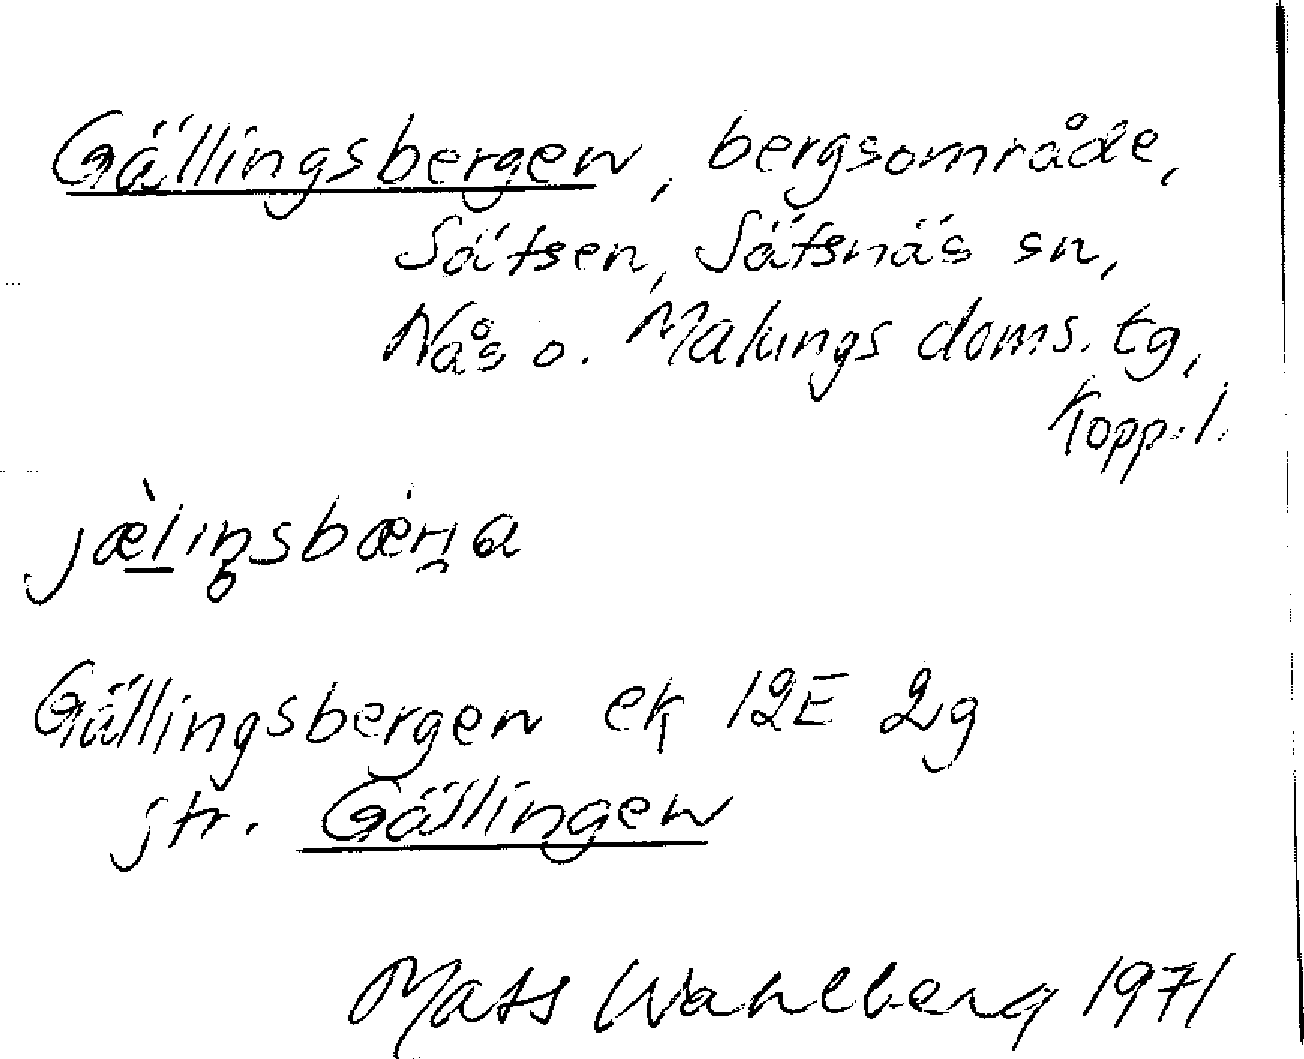 Gällingsbergen, bergsområde,
Sätsen, Sätsnäs sn,
Nås o. Malungs doms. tg,
Kopp. l.
jæ̀liŋsbærja
Gällingsbergen ek 12E 2g
jfr. Gällingen
Mats Wahlberg 1971